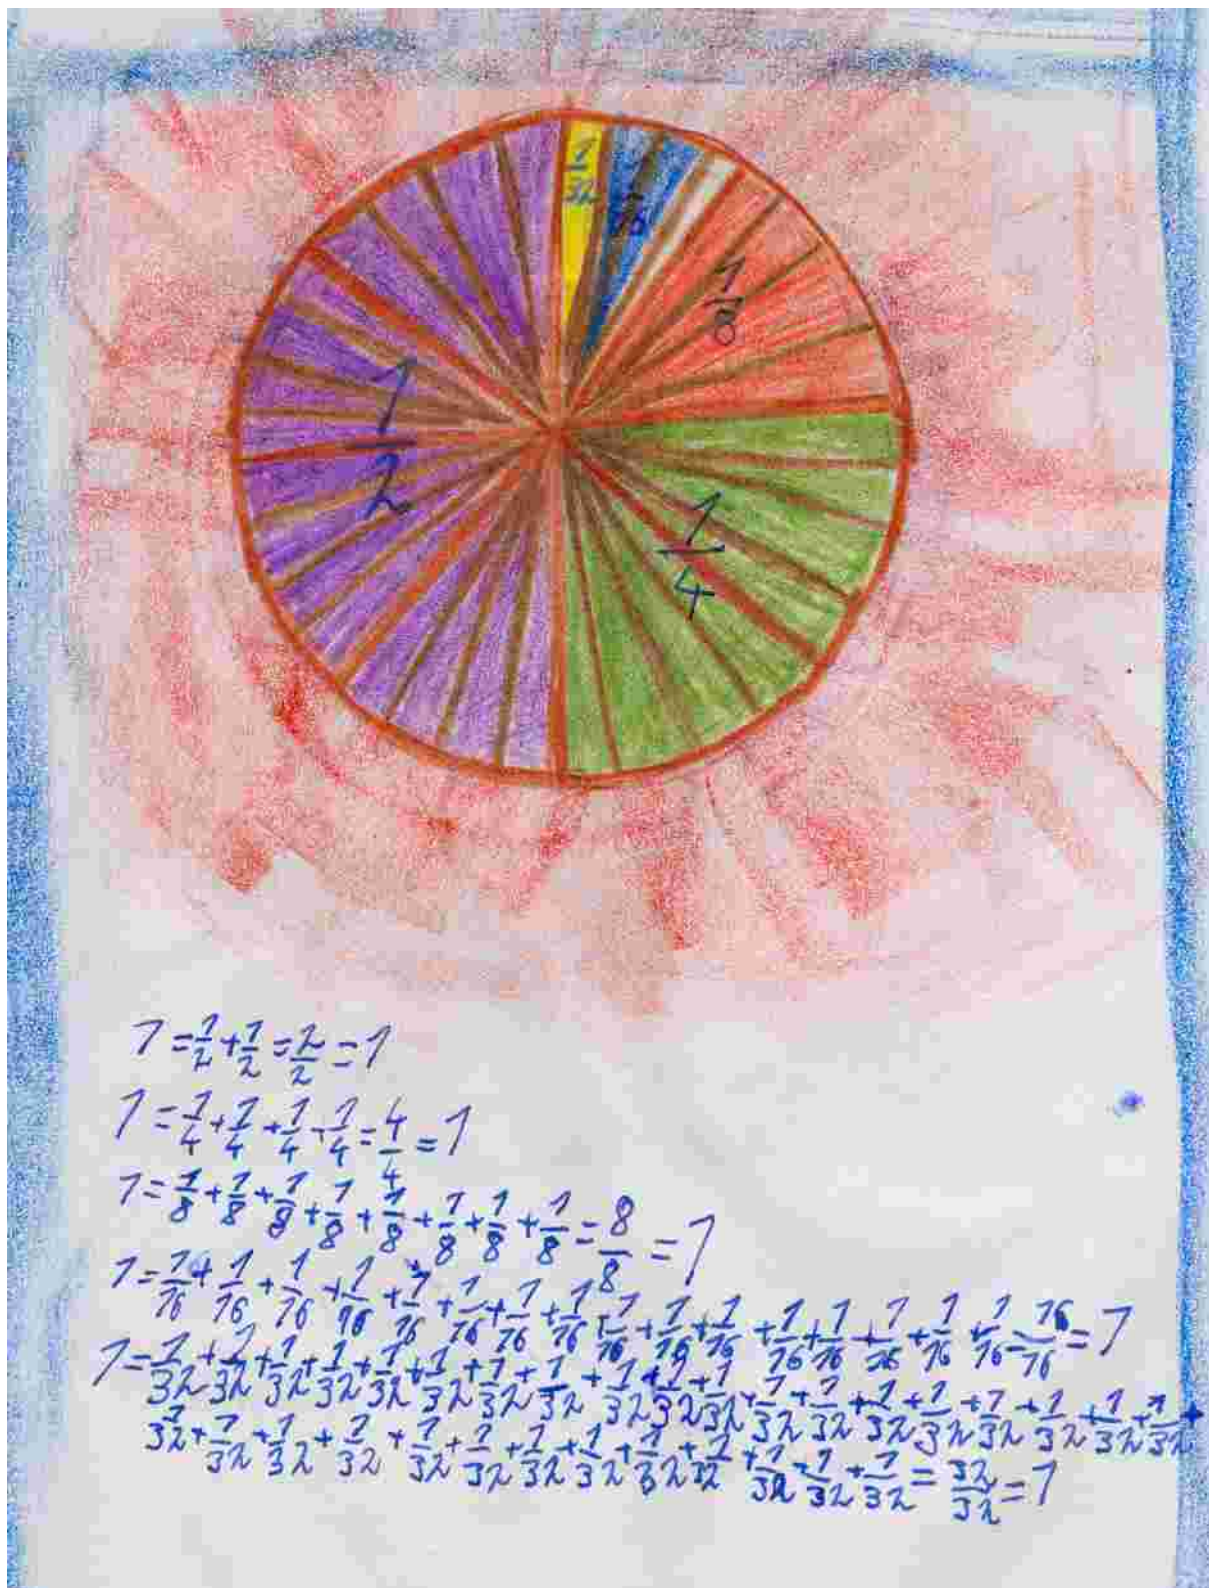 1/32
1/8
1/2
1/4
1=1/2+1/2=2/2=1
1=1/4+1/4+1/4+1/4=4/4=1
1=1/8+1/8+1/8+1/8+1/8+1/8+1/8+1/8=8/8=1
1=1/16+1/16+1/16+1/16+1/16+1/16+1/16+1/16+1/16+1/16+1/16+1/16+1/16+1/16+1/16+1/16=16/16=1
1=1/32+1/32+1/32+1/32+1/32+1/32+1/32+1/32+1/32+1/32+1/32+1/32+1/32+1/32+1/32+1/32+1/32+1/32+1/32+
1/32+1/32+1/32+1/32+1/32+1/32+1/32+1/32+1/32+1/32+1/32+1/32+1/32=32/32=1